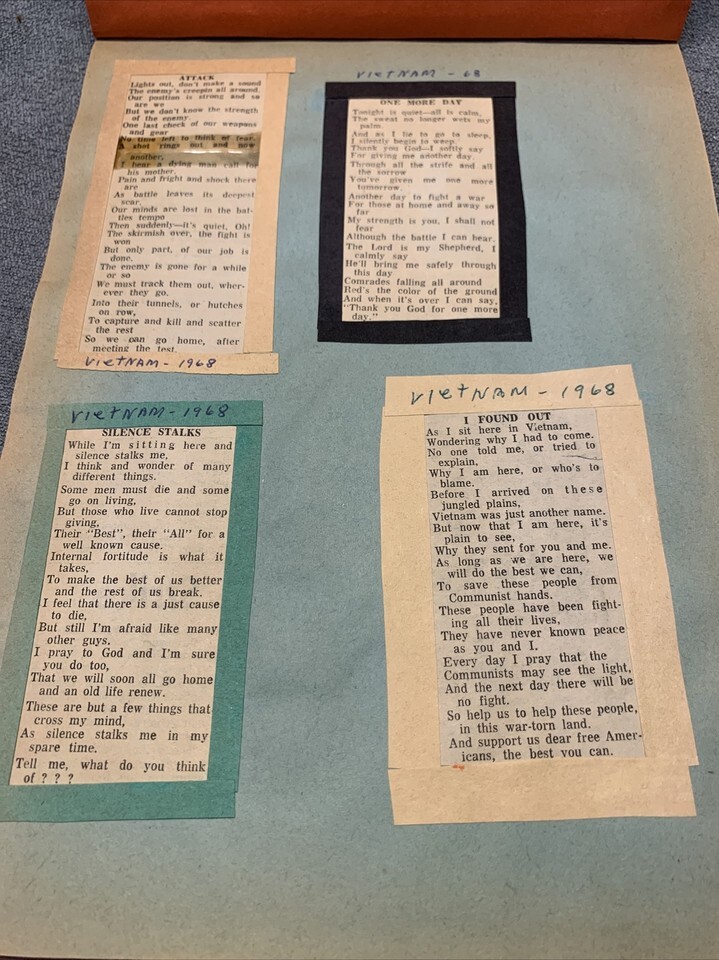 ATTACK
Lights out, don't make a sound
The enemy's creepin all around.
Our position is strong and so
are we
But we don't know the strength
of the enemy.
One last check of our weapons
and gear
No time left to think of fear.
A shot rings out and now
another,
I hear a dying man call for
his mother.
Pain and fright and shock there
are
As battle leaves its deepest
scar.
Our minds are lost in the bat-
tles tempo
Then suddenly—it's quiet, Oh!
The skirmish over, the fight is
won
But only part, of our job is
done.
The enemy is gone for a while
or so
We must track them out, wher-
ever they go.
Into their tunnels, or hutches
on row,
To capture and kill and scatter
the rest
So we can go home, after
meeting the test.
VIETNAM - 1968
VIETNAM - 68
ONE MORE DAY
Tonight is quiet—all is calm,
The sweat no longer wets my
palm.
And as I lie to go to sleep,
I silently begin to weep.
Thank you God—I softly say
For giving me another day.
Through all the strife and all
the sorrow
You've given me one more
tomorrow.
Another day to fight a war
For those at home and away so
far
My strength is you, I shall not
fear
Although the battle I can hear.
The Lord is my Shepherd, I
calmly say
He'll bring me safely through
this day
Comrades falling all around
Red's the color of the ground
And when it's over I can say,
"Thank you God for one more
day."
VIETNAM - 1968
SILENCE STALKS
While I'm sitting here and
silence stalks me,
I think and wonder of many
different things.
Some men must die and some
go on living,
But those who live cannot stop
giving,
Their "Best", their "All" for a
well known cause.
Internal fortitude is what it
takes,
To make the best of us better
and the rest of us break.
I feel that there is a just cause
to die,
But still I'm afraid like many
other guys.
I pray to God and I'm sure
you do too,
That we will soon all go home
and an old life renew.
These are but a few things that
cross my mind,
As silence stalks me in my
spare time.
Tell me, what do you think
of ? ? ?
VIETNAM - 1968
I FOUND OUT
As I sit here in Vietnam,
Wondering why I had to come.
No one told me, or tried to
explain,
Why I am here, or who's to
blame.
Before I arrived on these
jungled plains,
Vietnam was just another name.
But now that I am here, it's
plain to see,
Why they sent for you and me.
As long as we are here, we
will do the best we can,
To save these people from
Communist hands.
These people have been fight-
ing all their lives,
They have never known peace
as you and I.
Every day I pray that the
Communists may see the light,
And the next day there will be
no fight.
So help us to help these people,
in this war-torn land.
And support us dear free Amer-
icans, the best you can.